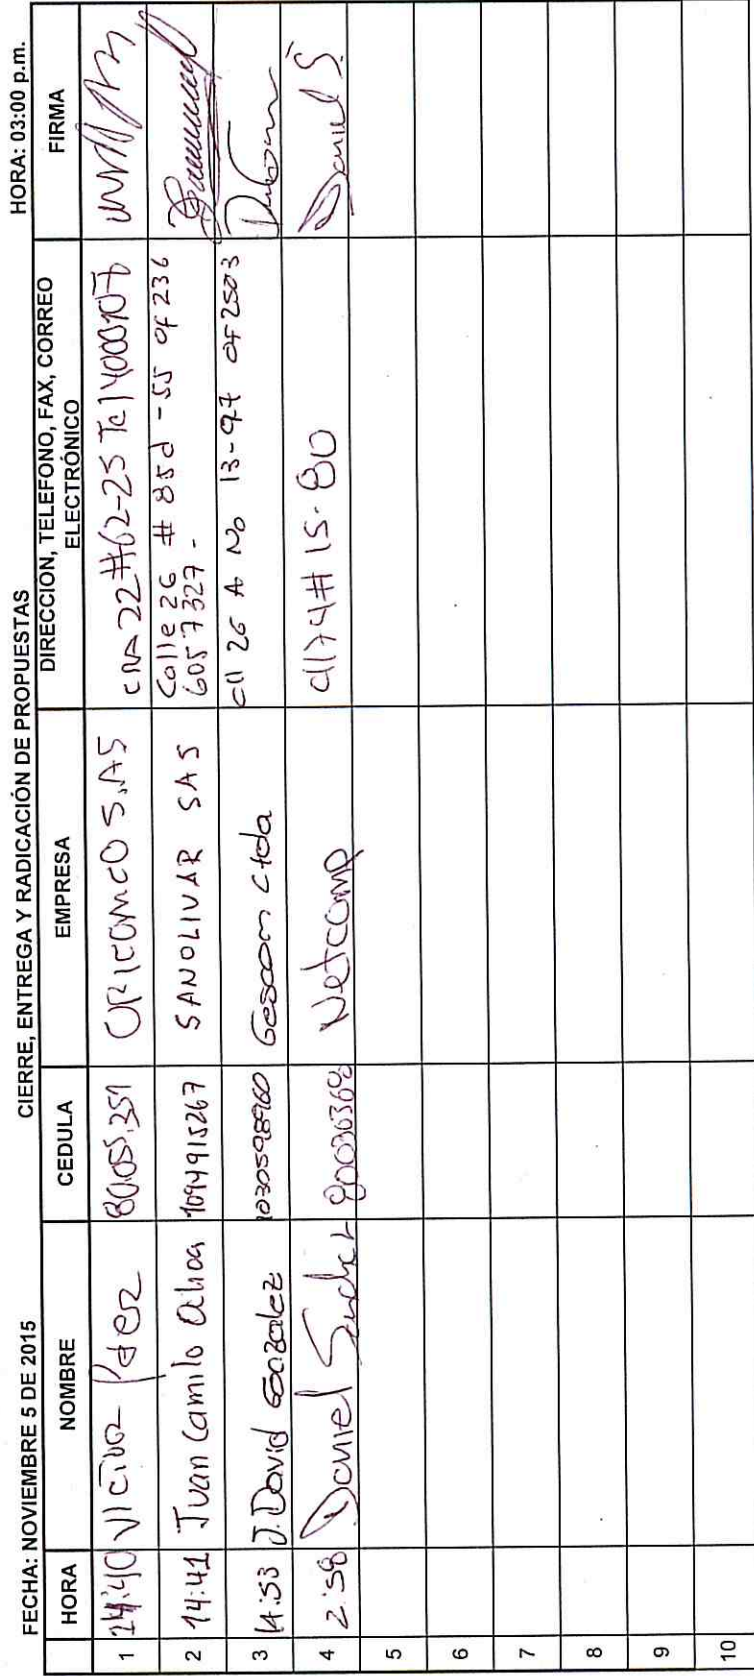 CIERRE, ENTREGA Y RADICACIÓN DE PROPUESTAS
FECHA: NOVIEMBRE 5 DE 2015 HORA: 03:00 p.m.
HORA NOMBRE CEDULA EMPRESA DIRECCIÓN, TELEFONO, FAX, CORREO ELECTRÓNICO FIRMA
1 14:40 Victor Paez 80.055.351 S.AS CRA 22 #62-25 Tel 4000107
2 14:41 Juan Camilo 1094915267 SANOLIVAR SAS Calle 26 # 85d - 55 of 236
6057327 -
3 14:53 J. David Gonzalez 1030598960 Gescom Ltda Cll 26 A No 13-97 of 2503
4 2:58 Daniel Netcomp Cll 74 # 15-80 Daniel S.
5
6
7
8
9
10